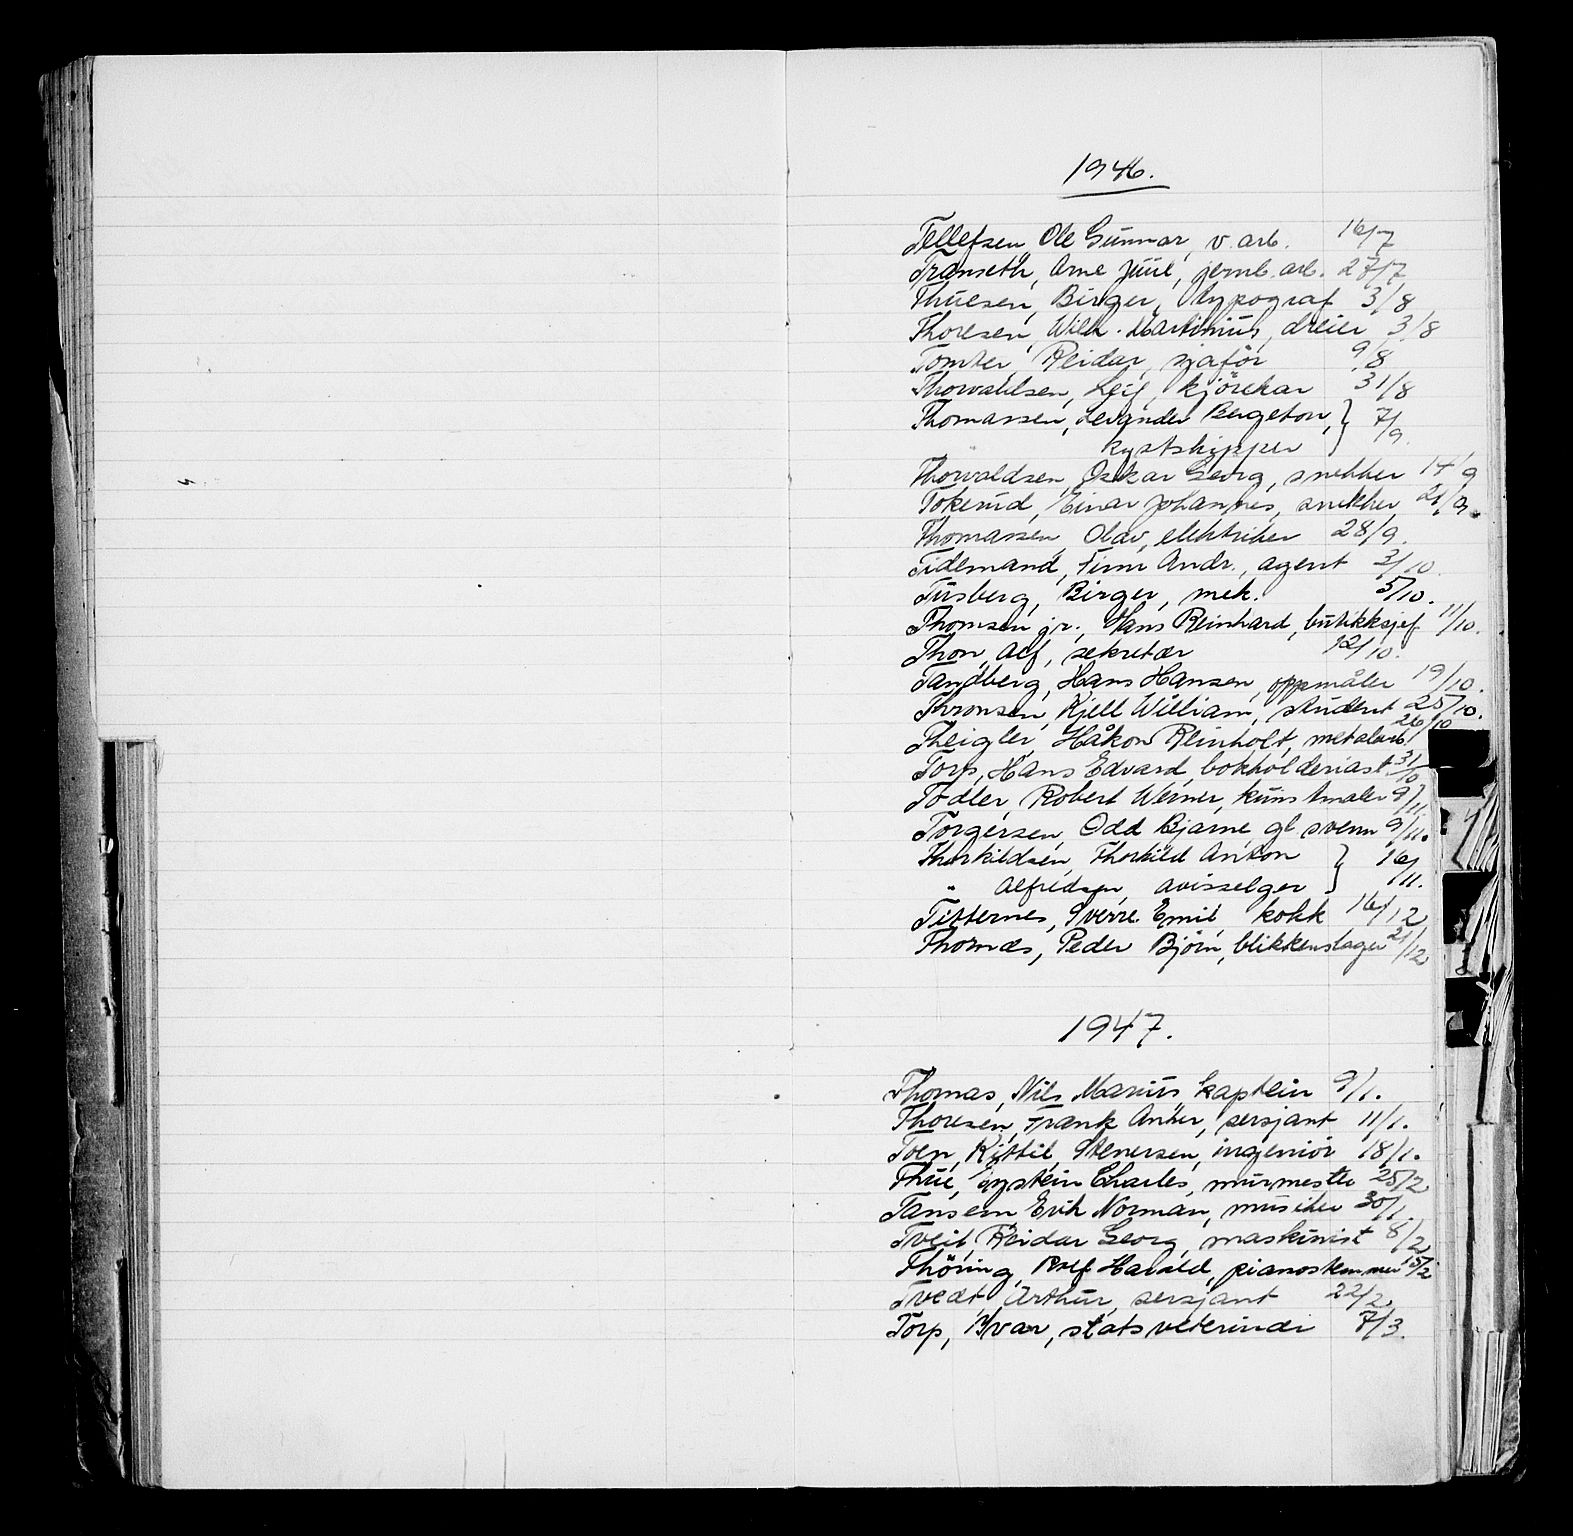 1946.
Tellefsen, Ole Gunnar, v. arb. 16/7
Transeth, Arne Juul, jernb. arb. 27/7
Thuesen, Birger, typograf 3/8
Thoresen, Wilh. Martinius, dreier 3/8
Tomter, Reidar, sjaför 9/8
Thorvaldsen, Leif, kjörekar 31/8
Thomassen, Bergeton, } 7/9.
kystskipper
Thorvaldsen, Oskar Georg, snekker 14/9
Tokerud, Einar Johannes, snekker 21/9.
Thomassen, Olav, elektriker 28/9.
Tidemand, Finn Andr., agent 3/10.
Tusberg, Birger, mek. 5/10.
Thomsen jr., Hans Reinhard, butikksjef 11/10.
Thon, Alf, sekretær 12/10.
Tandberg, Hans Hansen, oppmåler 19/10.
Thronsen, Kjell William, student 25/10.
Theigler, Håkon Reinholt, metalarb. 26/10
Torp, Hans Edvard, bokholderiast 31/10
Todler, Robert Werner, kunstmaler 9/11.
Torgersen, Odd Bjarne, gl. svenn 9/11.
Thorkildsen, Thorkild Anton } 16/11.
" Alfredsen, avisselger
Titternes, Sverre Emil kokk 16/12
Thomas, Peder Björn, blikkenslager 21/12
1947.
Thomas, Nils Marius, kaptein 9/1.
Thoresen, Frank Anker, sersjant 11/1.
Toen, Kittil Stenersen, ingeniör 18/1.
Thue, Øystein Charles, murmester 25/2
Tansem Erik Norman, musiker 30/1.
Tveit, Reidar Georg, maskinist 8/2
Thöring, Rolf Harald, pianostemmer 15/2
Tvedt, Arthur, sersjant 22/2
Torp, Ivar, statsveterinær 7/3.